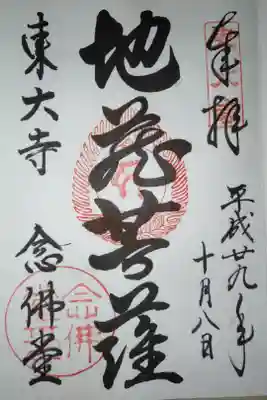 奉拝
平成廿九年
十月八日
地蔵菩薩
東大寺 念佛堂